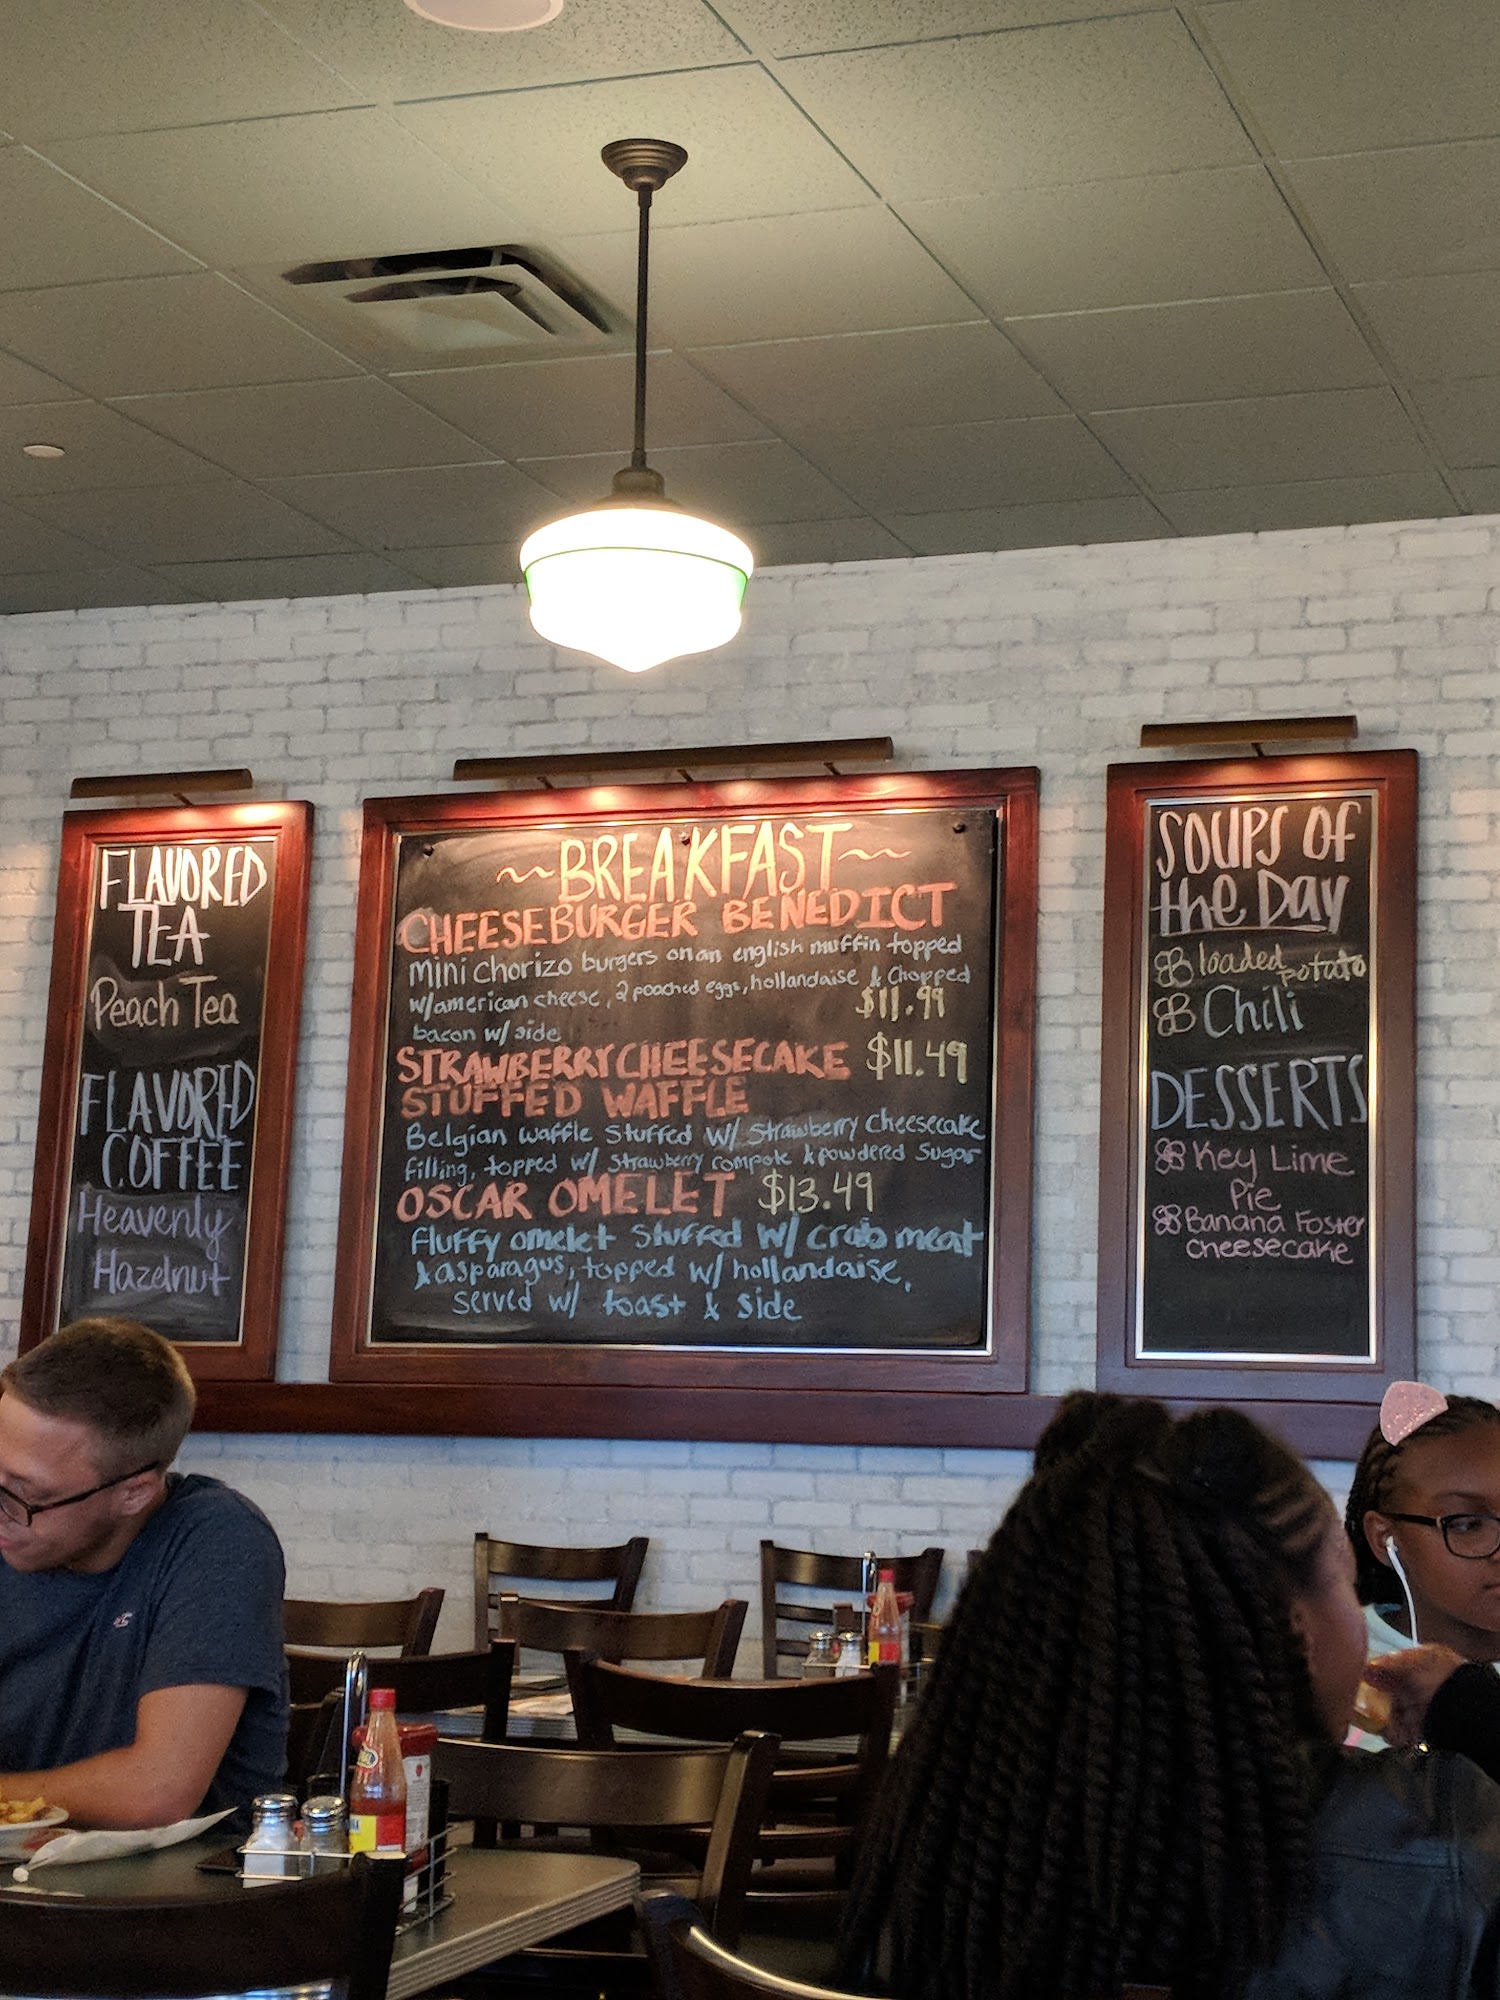 FLAVORED
TEA
Peach Tea
FLAVORED
COFFEE
Heavenly
Hazelnut
~BREAKFAST~
CHEESEBURGER BENEDICT
mini chorizo burgers on an english muffin topped
w/american cheese, 2 poached eggs, hollandaise & chopped
bacon w/ side $11.99
STRAWBERRY CHEESECAKE $11.49
STUFFED WAFFLE
Belgian waffle stuffed w/ strawberry cheesecake
filling, topped w/ strawberry compote & powdered sugar
OSCAR OMELET $13.49
fluffy omelet stuffed w/ crab meat
& asparagus, topped w/ hollandaise,
served w/ toast & side
SOUPS OF
the Day
loaded potato
Chili
DESSERTS
Key Lime
Pie
Banana Foster
cheesecake